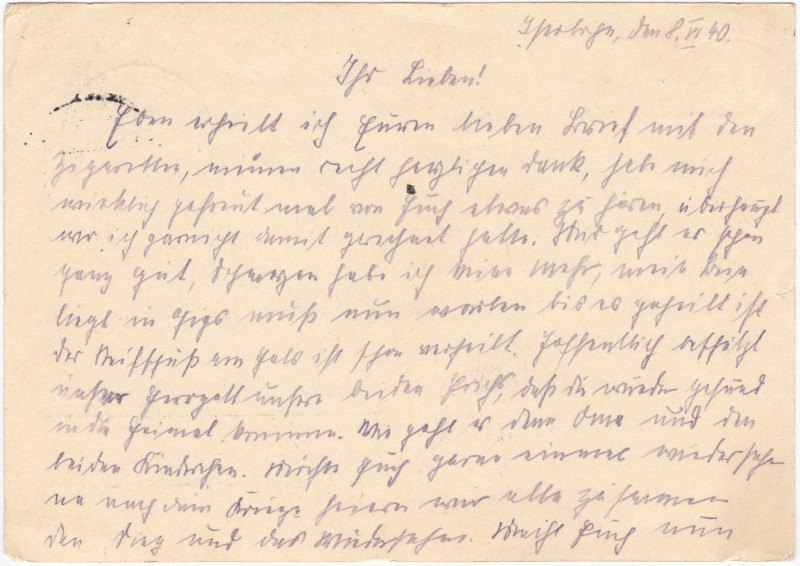 Iserlohn, den 8. VI 40.
Ihr Lieben!
Eben erhielt ich Euren lieben Brief mit den
Zigaretten, meinen recht herzlichen Dank, habe mich
wirklich gefreut mal von Euch etwas zu hören, überhaupt
wo ich garnicht damit gerechnet hatte. Mir geht es schon
ganz gut, Schmerzen habe ich keine mehr, mein Bein
liegt in Gips muß nun warten bis es geheilt ist
der Streifschuß am Hals ist schon verheilt. Hoffentlich beschützt
unser Herrgott unsere beiden Erichs, daß die wieder gesund
in die Heimat kommen. Wie geht es denn Oma und den
beiden Kinderchen. Möchte Euch gerne einmal wiedersehe
ne nach dem Kriege feiern wir alle zusammen
den Sieg und das Wiedersehen. Macht Euch nun